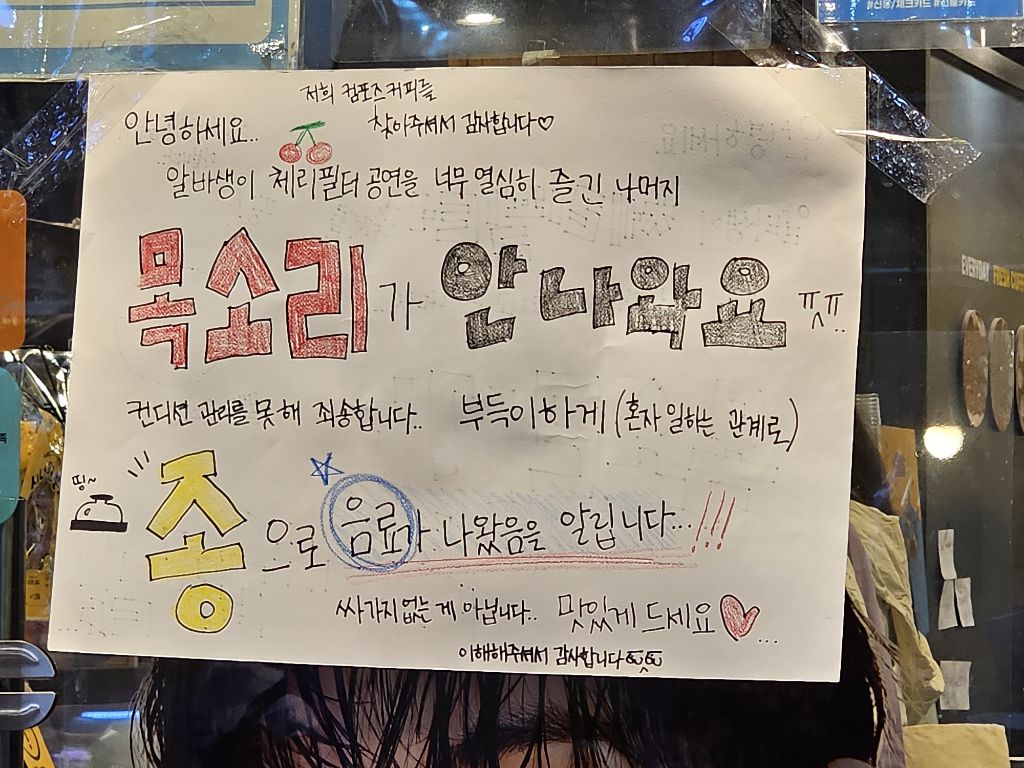 #신용/체크카드 #선불카드
저희 컴포즈커피를
안녕하세요..
찾아주셔서 감사합니다♡
알바생이 체리필터 공연을 너무 열심히 즐긴 나머지
목소리가 안 나와요 ㅠㅅㅠ..
컨디션 관리를 못해 죄송합니다.. 부득이하게 (혼자 일하는 관계로)
띵~
종으로 음료가 나왔음을 알립니다...!!!
싸가지없는 게 아닙니다.. 맛있게 드세요♡...
이해해주셔서 감사합니다
EVERYDAY FRESH COFFEE